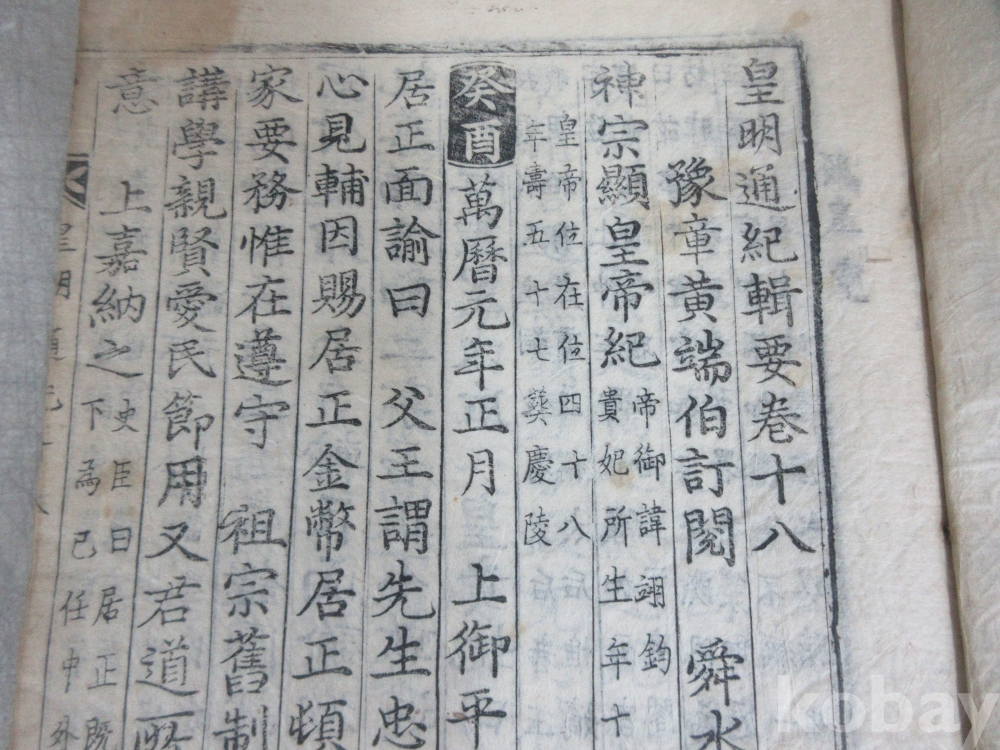 皇明通紀輯要卷十八
豫章黃端伯訂閱 舜水
神宗顯皇帝紀 帝御諱翊鈞
貴妃所生年十
皇帝位在位四十八
年壽五十七葬慶陵
癸酉 萬曆元年正月 上御平
居正面諭曰 父王謂先生忠
心見輔因賜居正金幣居正頓
家要務惟在遵守 祖宗舊制
講學親賢愛民節用又君道所
意 上嘉納之 史臣曰居正既
下為己任中外
皇明通紀
kobay